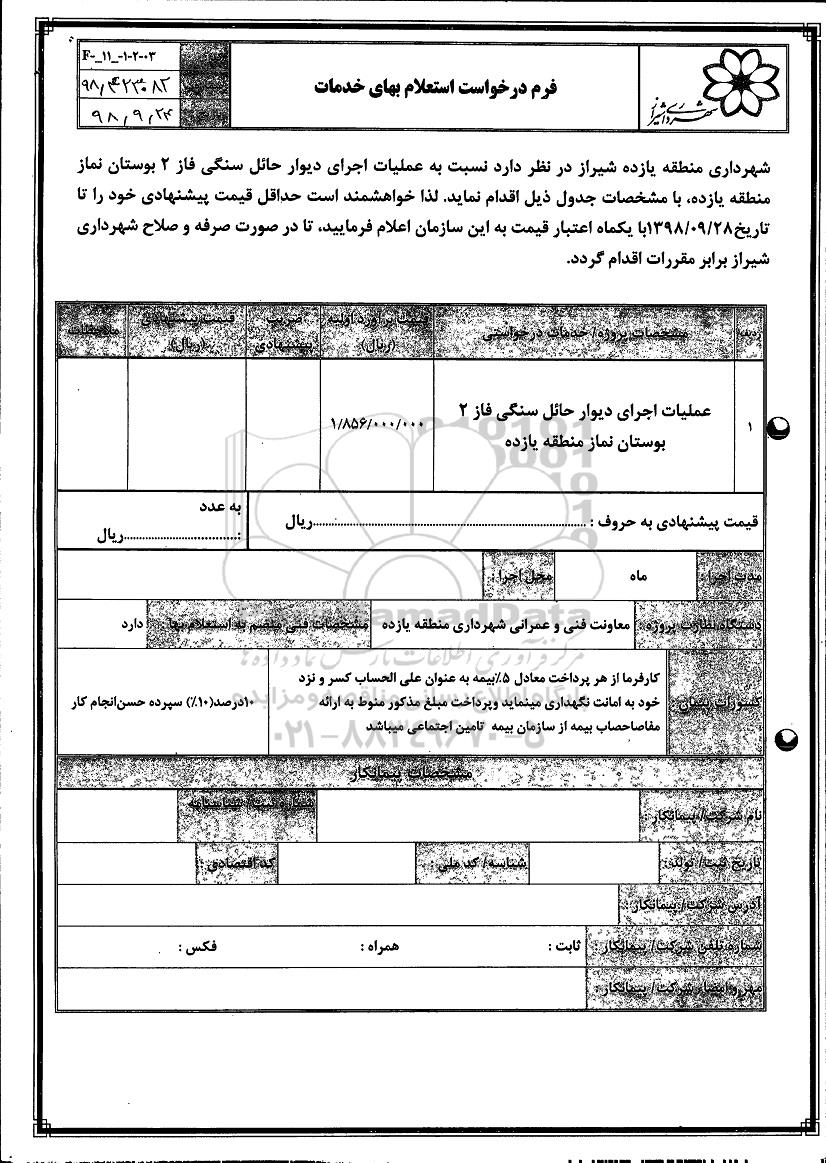 F-_۱۱_-۱-۲-۰۳
۹۸/۹/۲۴
فرم درخواست استعلام بهای خدمات
شهرداری شیراز
شهرداری منطقه یازده شیراز در نظر دارد نسبت به عملیات اجرای دیوار حائل سنگی فاز ۲ بوستان نماز
منطقه یازده، با مشخصات جدول ذیل اقدام نماید. لذا خواهشمند است حداقل قیمت پیشنهادی خود را تا
تاریخ۱۳۹۸/۰۹/۲۸با یکماه اعتبار قیمت به این سازمان اعلام فرمایید، تا در صورت صرفه و صلاح شهرداری
شیراز برابر مقررات اقدام گردد.
ردیف
مشخصات پروژه/ خدمات درخواستی
قیمت برآورد اولیه
(ریال)
ضریب
پیشنهادی
قیمت پیشنهادی
(ریال)
ملاحظات
۱
عملیات اجرای دیوار حائل سنگی فاز ۲
بوستان نماز منطقه یازده
۱/۸۵۶/۰۰۰/۰۰۰
قیمت پیشنهادی به حروف : ............................ریال
به عدد
:............................ریال
مدت اجرا :
ماه
محل اجرا :
دستگاه نظارت پروژه :
معاونت فنی و عمرانی شهرداری منطقه یازده
مشخصات فنی منضم به استعلام بها :
دارد
کسورات پیمان :
کارفرما از هر پرداخت معادل ۵٪بیمه به عنوان علی الحساب کسر و نزد
خود به امانت نگهداری مینماید وپرداخت مبلغ مذکور منوط به ارائه
مفاصاحصاب بیمه از سازمان بیمه تامین اجتماعی میباشد
۱۰درصد(۱۰٪) سپرده حسن‌انجام کار
مشخصات پیمانکار
نام شرکت/ پیمانکار :
شماره ثبت/ شناسنامه
تاریخ ثبت/ تولد :
شناسه/ کد ملی :
کد اقتصادی :
آدرس شرکت/ پیمانکار :
شماره تلفن شرکت/ پیمانکار :
ثابت :
همراه :
فکس :
مهر و امضاء شرکت/ پیمانکار :
مرکز فرآوری اطلاعات پارس نماد داده ها
پایگاه اطلاع رسانی مناقصه و مزایده
۰۲۱-۸۸۳۴۹۶۷۰-۵